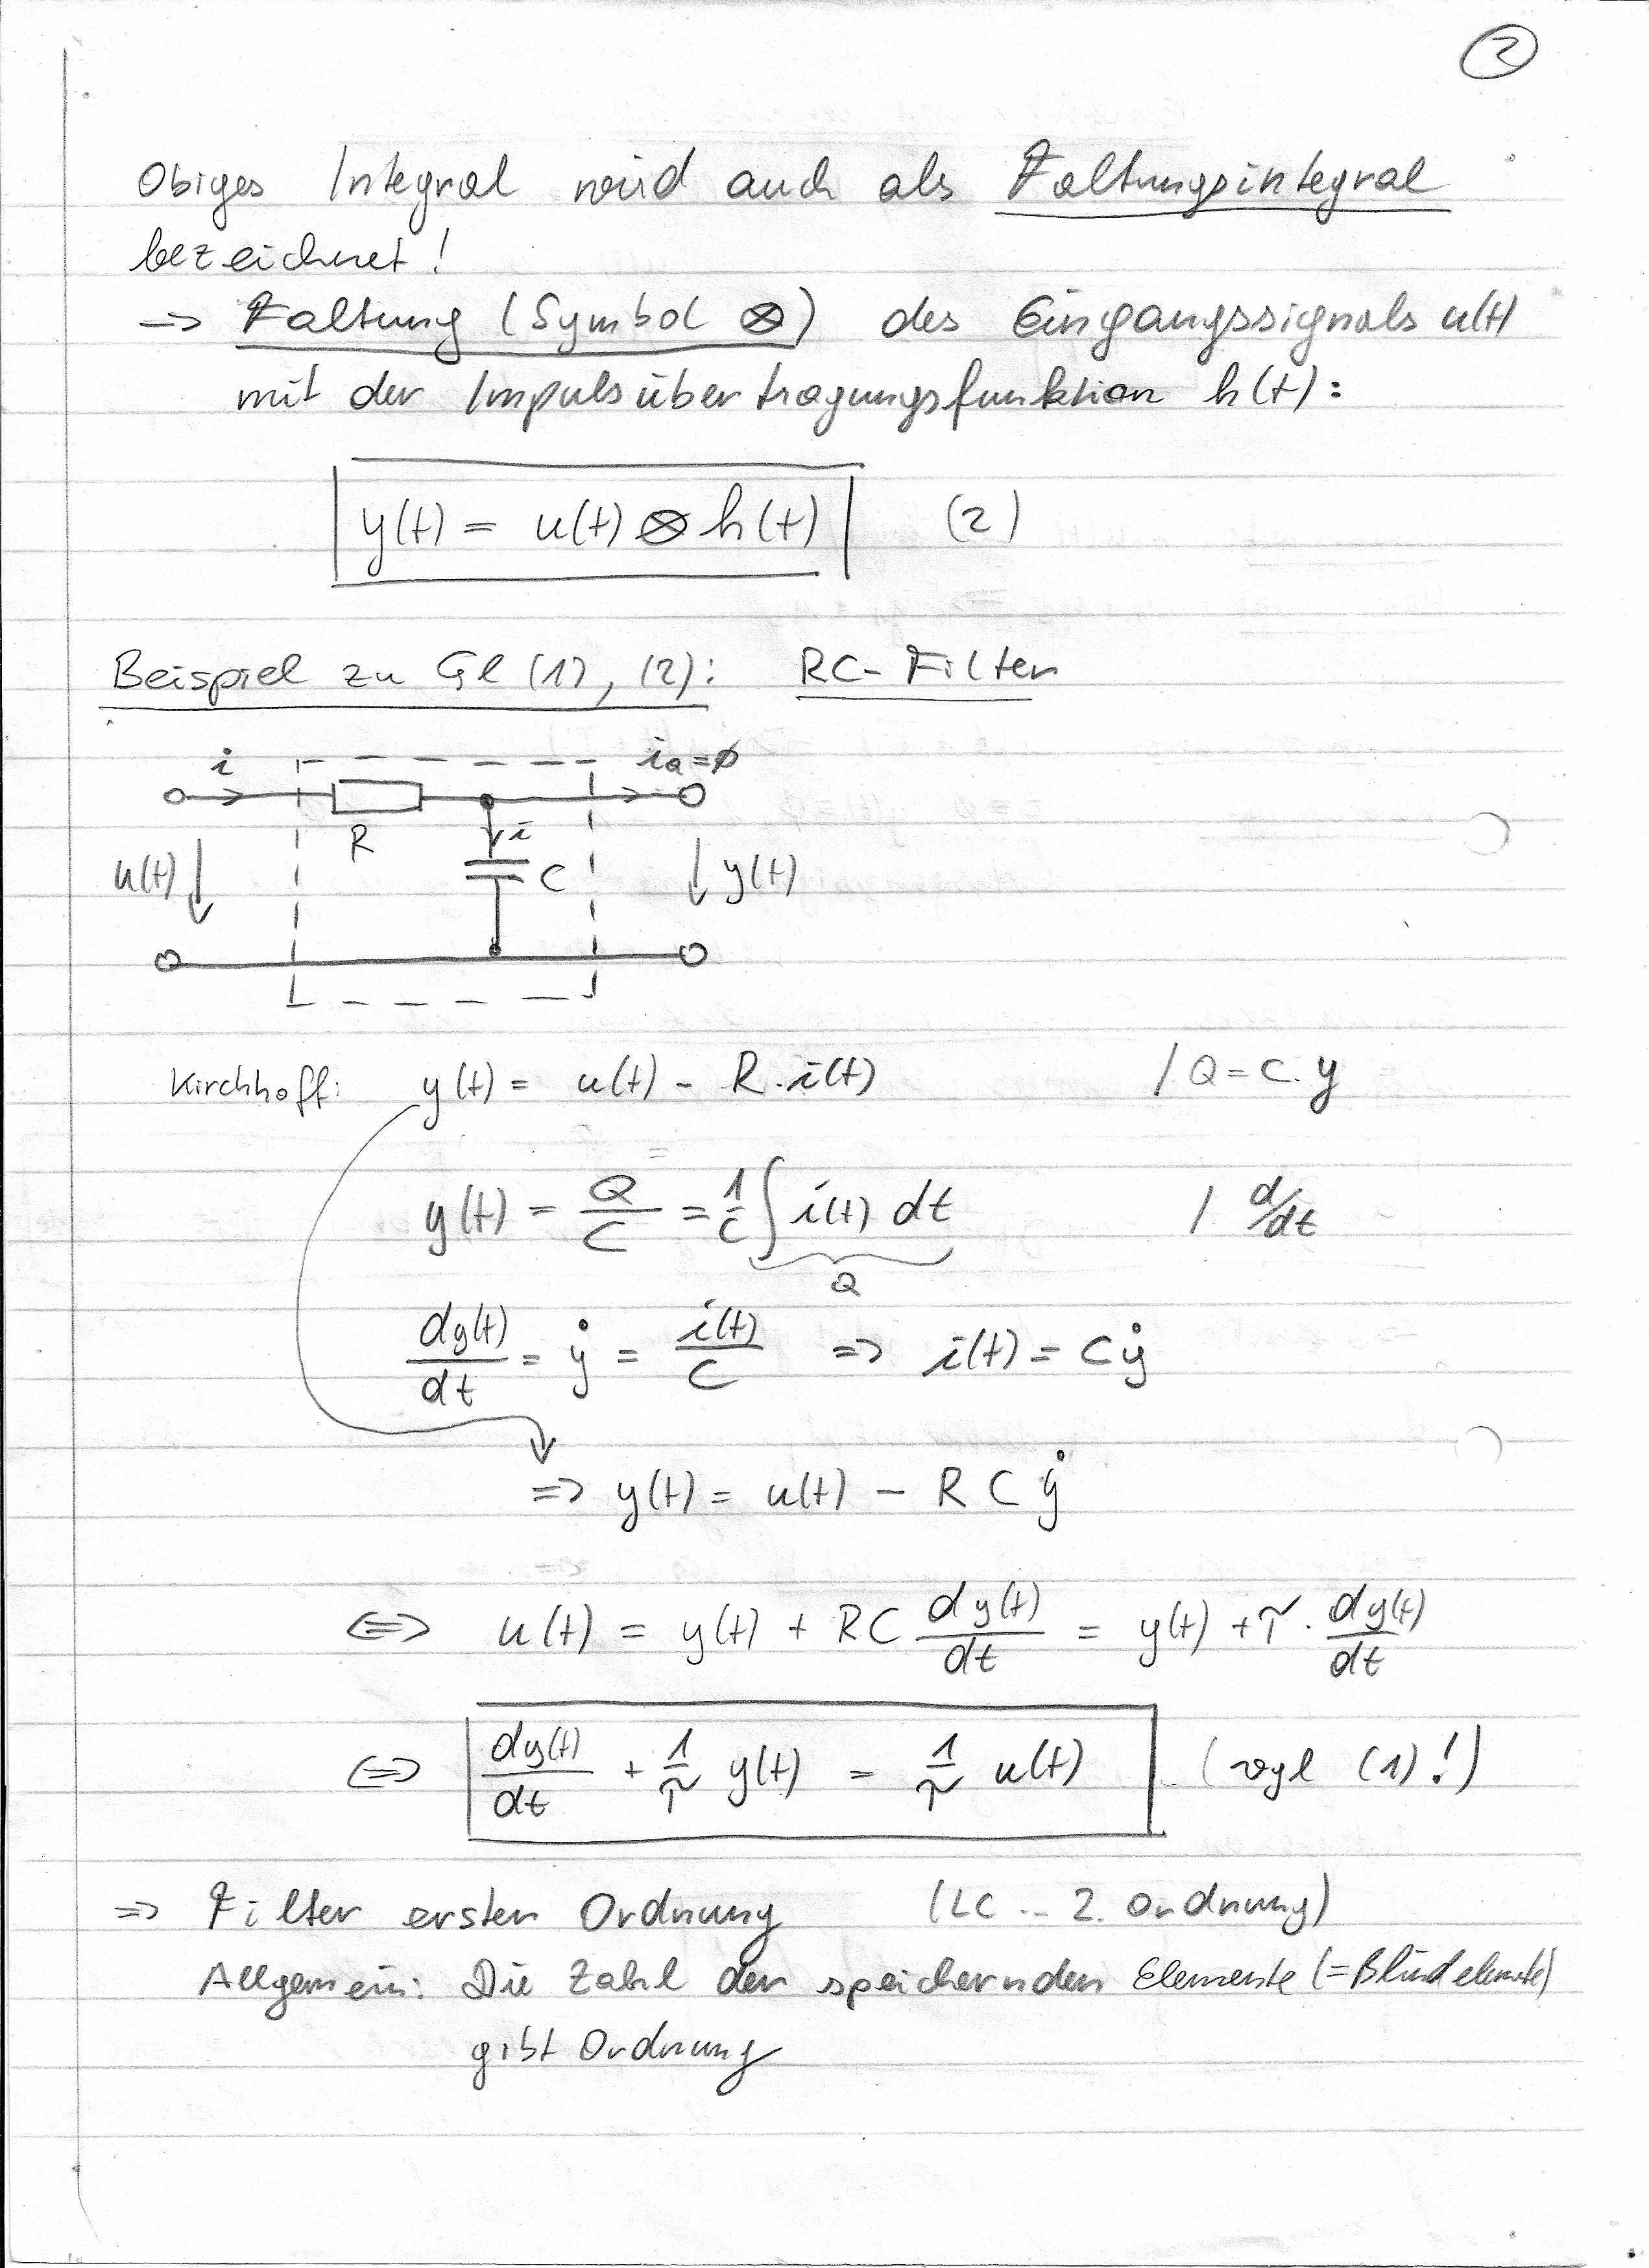 2
Obiges Integral wird auch als Faltungsintegral
bezeichnet!
=> Faltung (Symbol ⊗) des Eingangssignals u(t)
mit der Impulsübertragungsfunktion h(t):
y(t) = u(t) ⊗ h(t) (2)
Beispiel zu Gl (1), (2): RC-Filter
i ia=ø
R i
u(t) C y(t)
Kirchhoff: y(t) = u(t) - R·i(t) / Q = C·y
y(t) = Q/C = 1/C ∫ i(t) dt / d/dt
Q
dy(t)/dt = ẏ = i(t)/C => i(t) = Cẏ
=> y(t) = u(t) - R C ẏ
<=> u(t) = y(t) + RC dy(t)/dt = y(t) + τ · dy(t)/dt
<=> dy(t)/dt + 1/τ y(t) = 1/τ u(t) (vgl (1)!)
=> Filter ersten Ordnung (LC ... 2. Ordnung)
Allgemein: Die Zahl der speichernden Elemente (=Blindelemente)
gibt Ordnung